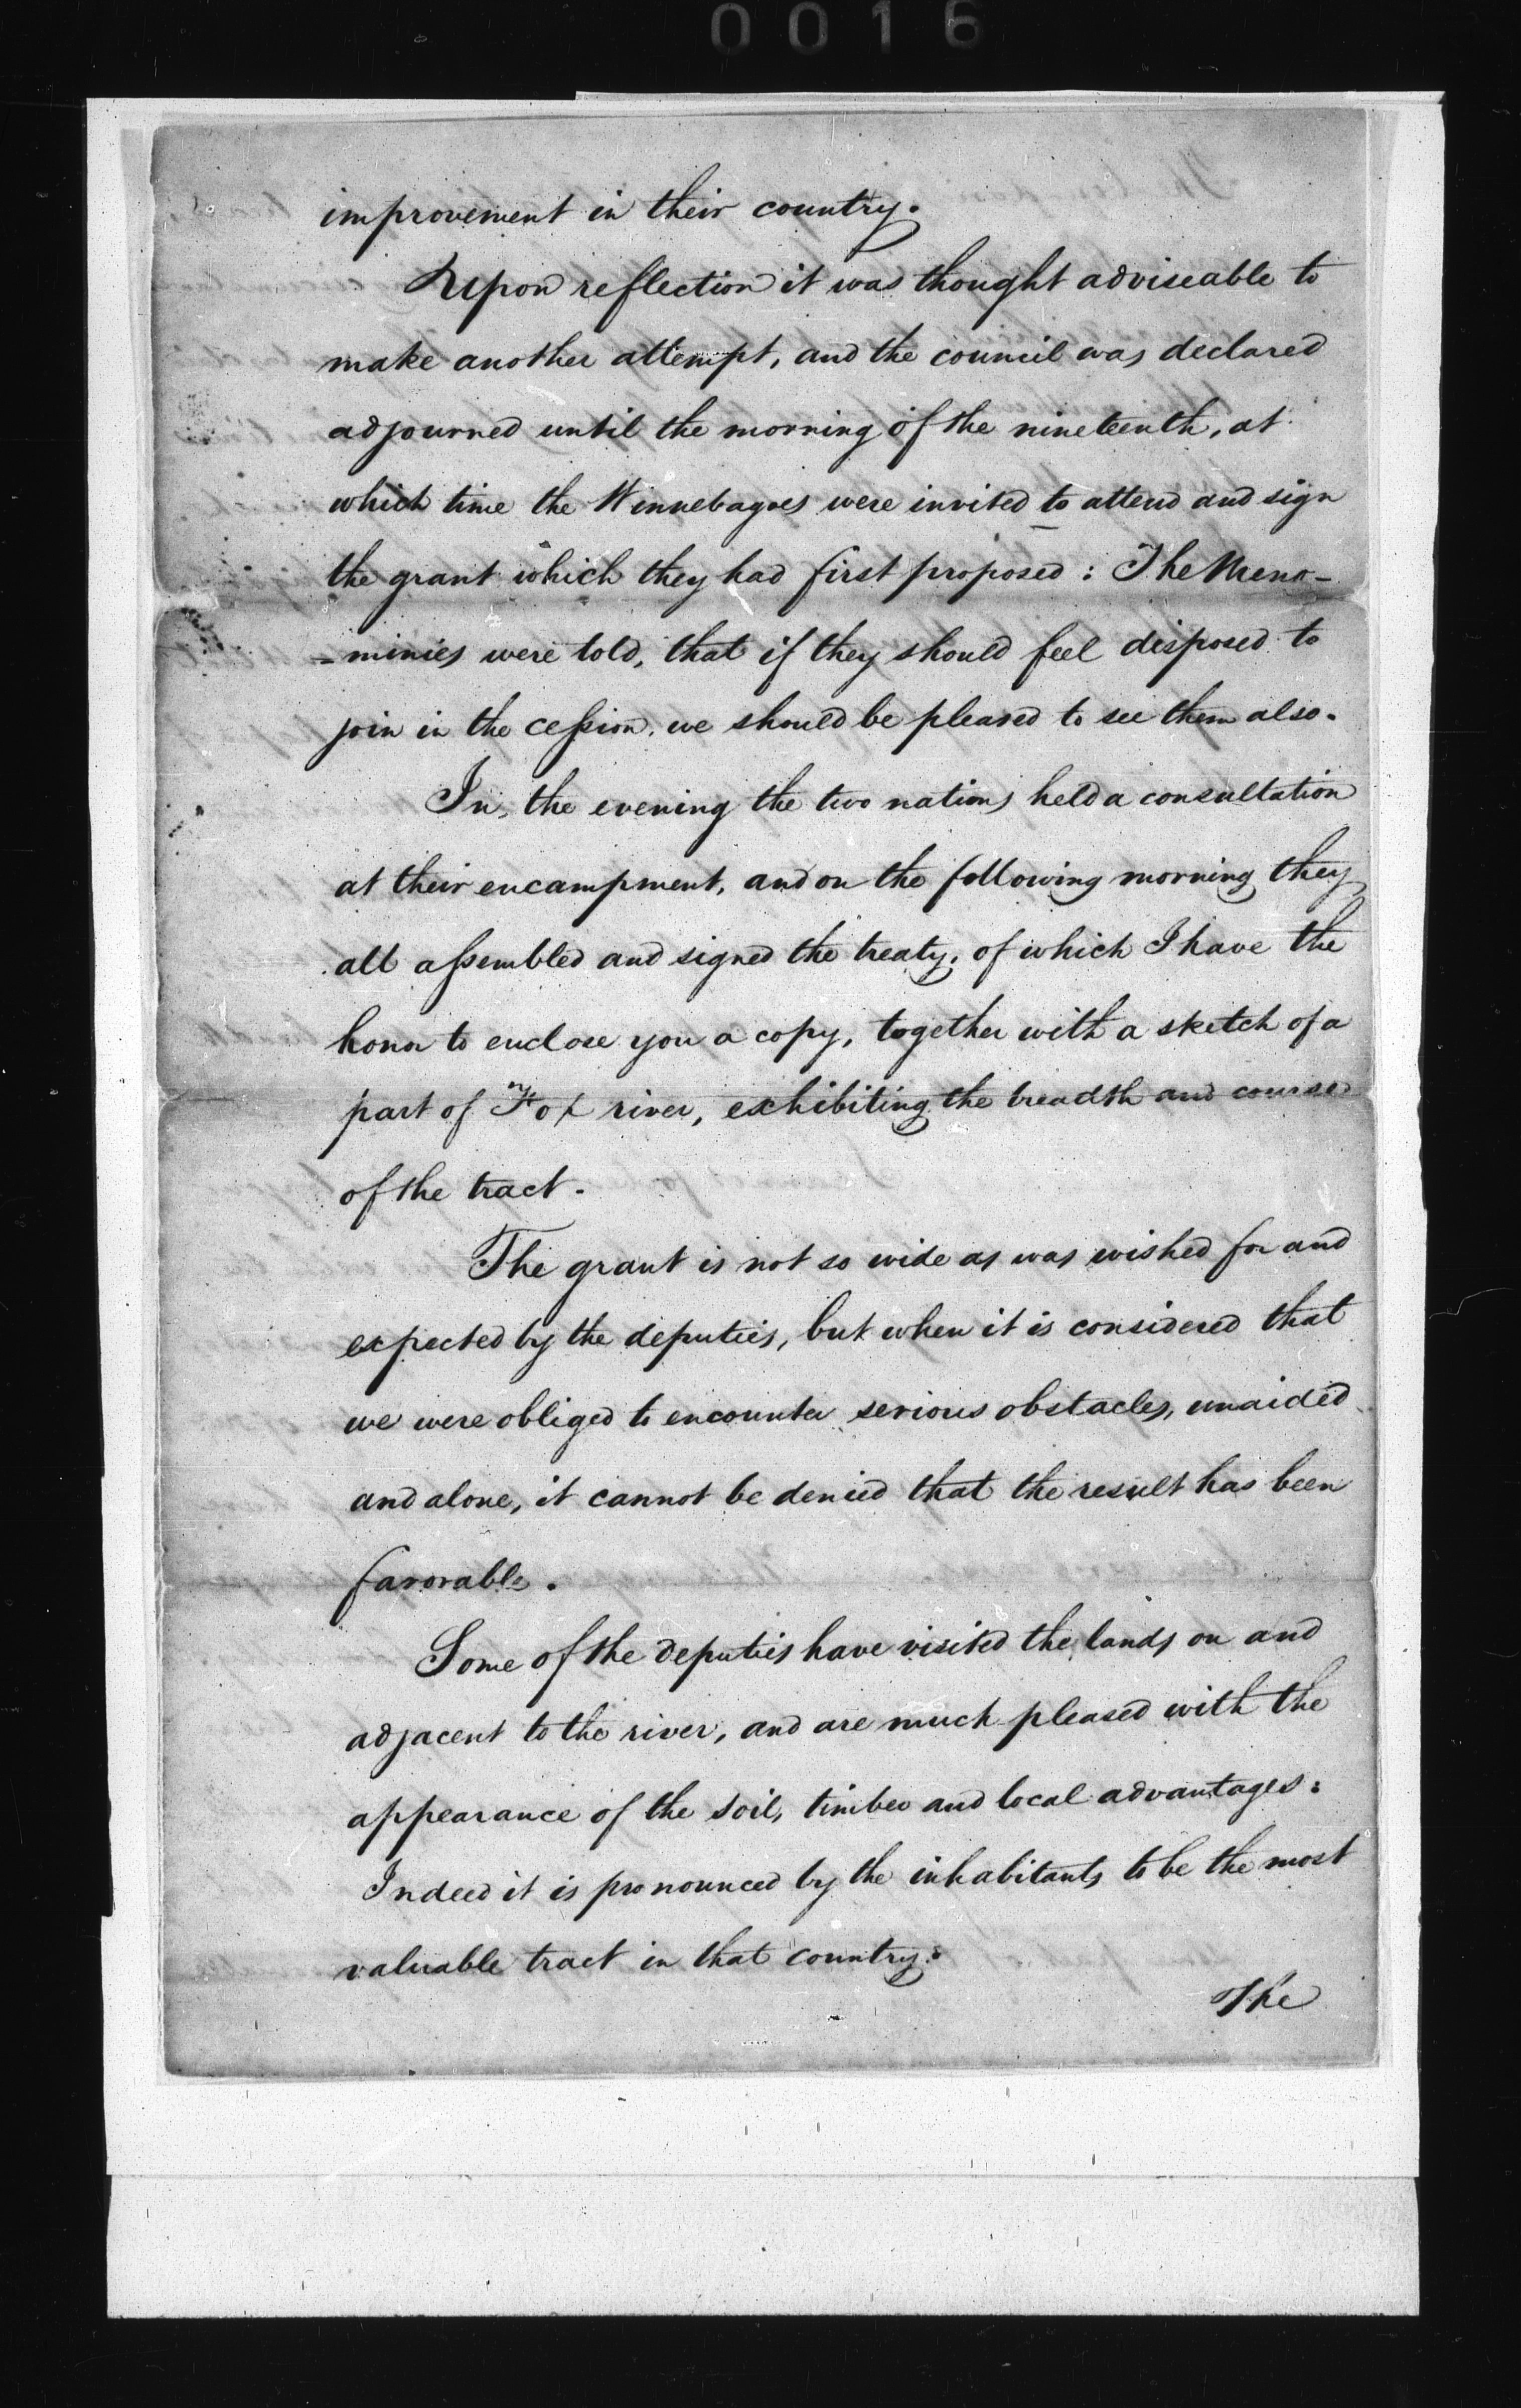 0016
improvement in their country.
Upon reflection it was thought adviseable to
make another attempt, and the council was declared
adjourned until the morning of the nineteenth, at
which time the Winnebagoes were invited to attend and sign
the grant which they had first proposed: The Meno-
-minies were told, that if they should feel disposed to
join in the ceſsion, we should be pleased to see them also.
In, the evening the two nations held a consultation
at their encampment, and on the following morning they
all aſsembled and signed the treaty, of which I have the
honor to enclose you a copy, together with a sketch of a
part of Fox river, exhibiting the breadth and course
of the tract.
The grant is not so wide as was wished for and
expected by the deputies, but when it is considered that
we were obliged to encounter serious obstacles, unaided
and alone, it cannot be denied that the result has been
favorable.
Some of the deputies have visited the lands on and
adjacent to the river, and are much pleased with the
appearance of the soil, timber and local advantages:
Indeed it is pronounced by the inhabitants to be the most
valuable tract in that country:
The